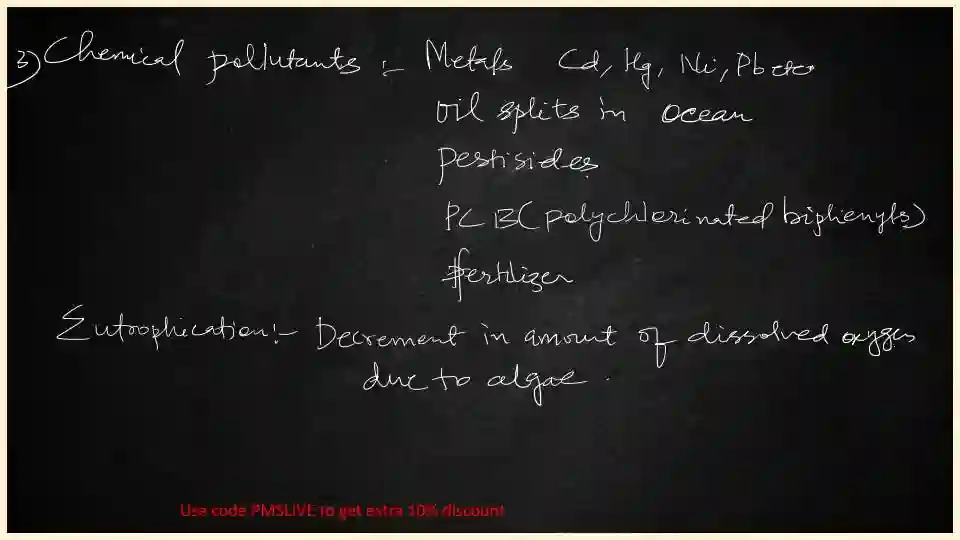 3) Chemical pollutants :- Metals Cd, Hg, Ni, Pb etc
oil splits in ocean
Pestisides
PCB (polychlorinated biphenyls)
fertilizer
Eutrophication:- Decrement in amount of dissolved oxygen
due to algae.
Use code PMSLIVE to get extra 10% discount